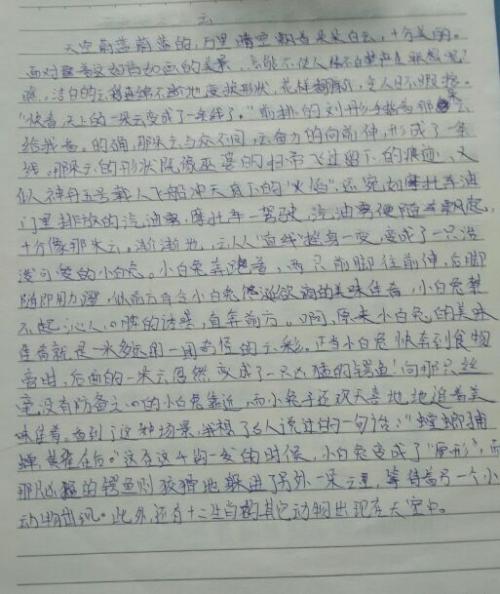 云
天空蔚蓝蔚蓝的,万里晴空飘着朵朵白云,十分美的。
面对着这如诗如画的美景,怎能不使人
瞧,洁白的云朵连绵不断地变换形状,花样翻新,令人目不暇接。
"快看,天上的一朵云变成了一条线了。"前排的刘彤手指着那朵云
给我看。的确,那朵云与众不同,云奋力的向前伸,形成了一条
线,那朵云的形状既像巫婆的扫帚飞过留下的痕迹,又
似神舟五号载人飞船冲天留下的"火焰",还宛如摩托车油
门里排放的汽油雾,摩托车一驾驶,汽油雾便随着飘起,
十分像那朵云,渐渐地,云从"直线"摇身一变,变成了一只活
泼可爱的小白兔。小白兔奔跑着,两只前脚往前伸,后脚
随即用力蹬,似前方有令小白兔垂涎欲滴的美味佳肴,小白兔禁
不起心人心脾的诱惑,直奔前方。啊,原来小白兔的美味
佳肴就是一朵多边形一用奇怪的云彩。正当小白兔快奔到食物
旁时,后面的一朵云忽然变成了一只凶猛的鳄鱼!向那只丝
毫没有防备之心的小白兔靠近,而小兔子还欢天喜地地追着美
味佳肴,看到了这种场景,我想了古人说过的一句话:"螳螂捕
蝉,黄雀在后。"这在这千钧一发的时候,小白兔变成了"原形",而
那凶猛的鳄鱼则狡猾地躲进了另外一朵云里,等待着另一个小
动物出现。此外,还有十二生肖的其它动物出现在天空中。